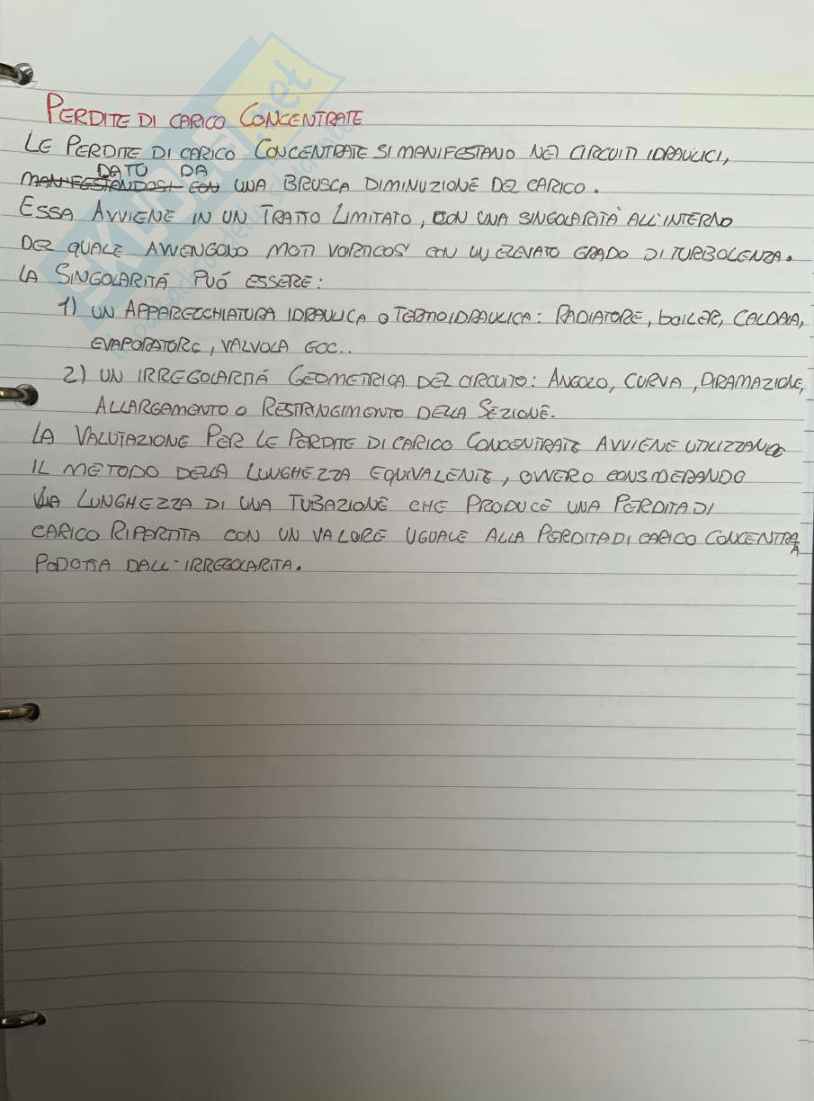 PERDITE DI CARICO CONCENTRATE
LE PERDITE DI CARICO CONCENTRATE SI MANIFESTANO NEI CIRCUITI IDRAULICI,
DATO DA
MANIFESTANDOSI CON UNA BRUSCA DIMINUZIONE DEL CARICO.
ESSA AVVIENE IN UN TRATTO LIMITATO, CON UNA SINGOLARITÀ ALL'INTERNO
DEL QUALE AVVENGONO MOTI VORTICOSI CON UN ELEVATO GRADO DI TURBOLENZA.
LA SINGOLARITÁ PUÓ ESSERE:
1) UN APPARECCHIATURA IDRAULICA O TERMOIDRAULICA: RADIATORE, BOILER, CALDAIA,
EVAPORATORE, VALVOLA ECC..
2) UN IRREGOLARITÁ GEOMETRICA DEL CIRCUITO: ANGOLO, CURVA, DIRAMAZIONE,
ALLARGAMENTO O RESTRINGIMENTO DELLA SEZIONE.
LA VALUTAZIONE PER LE PERDITE DI CARICO CONCENTRATE AVVIENE UTILIZZANDO
IL METODO DELLA LUNGHEZZA EQUIVALENTE, OVVERO CONSIDERANDO
LA LUNGHEZZA DI UNA TUBAZIONE CHE PRODUCE UNA PERDITA DI
CARICO RIPARTITA CON UN VALORE UGUALE ALLA PERDITA DI CARICO CONCENTRATA
PODOTTA DALL'IRREGOLARITA.
SKUOLA.net